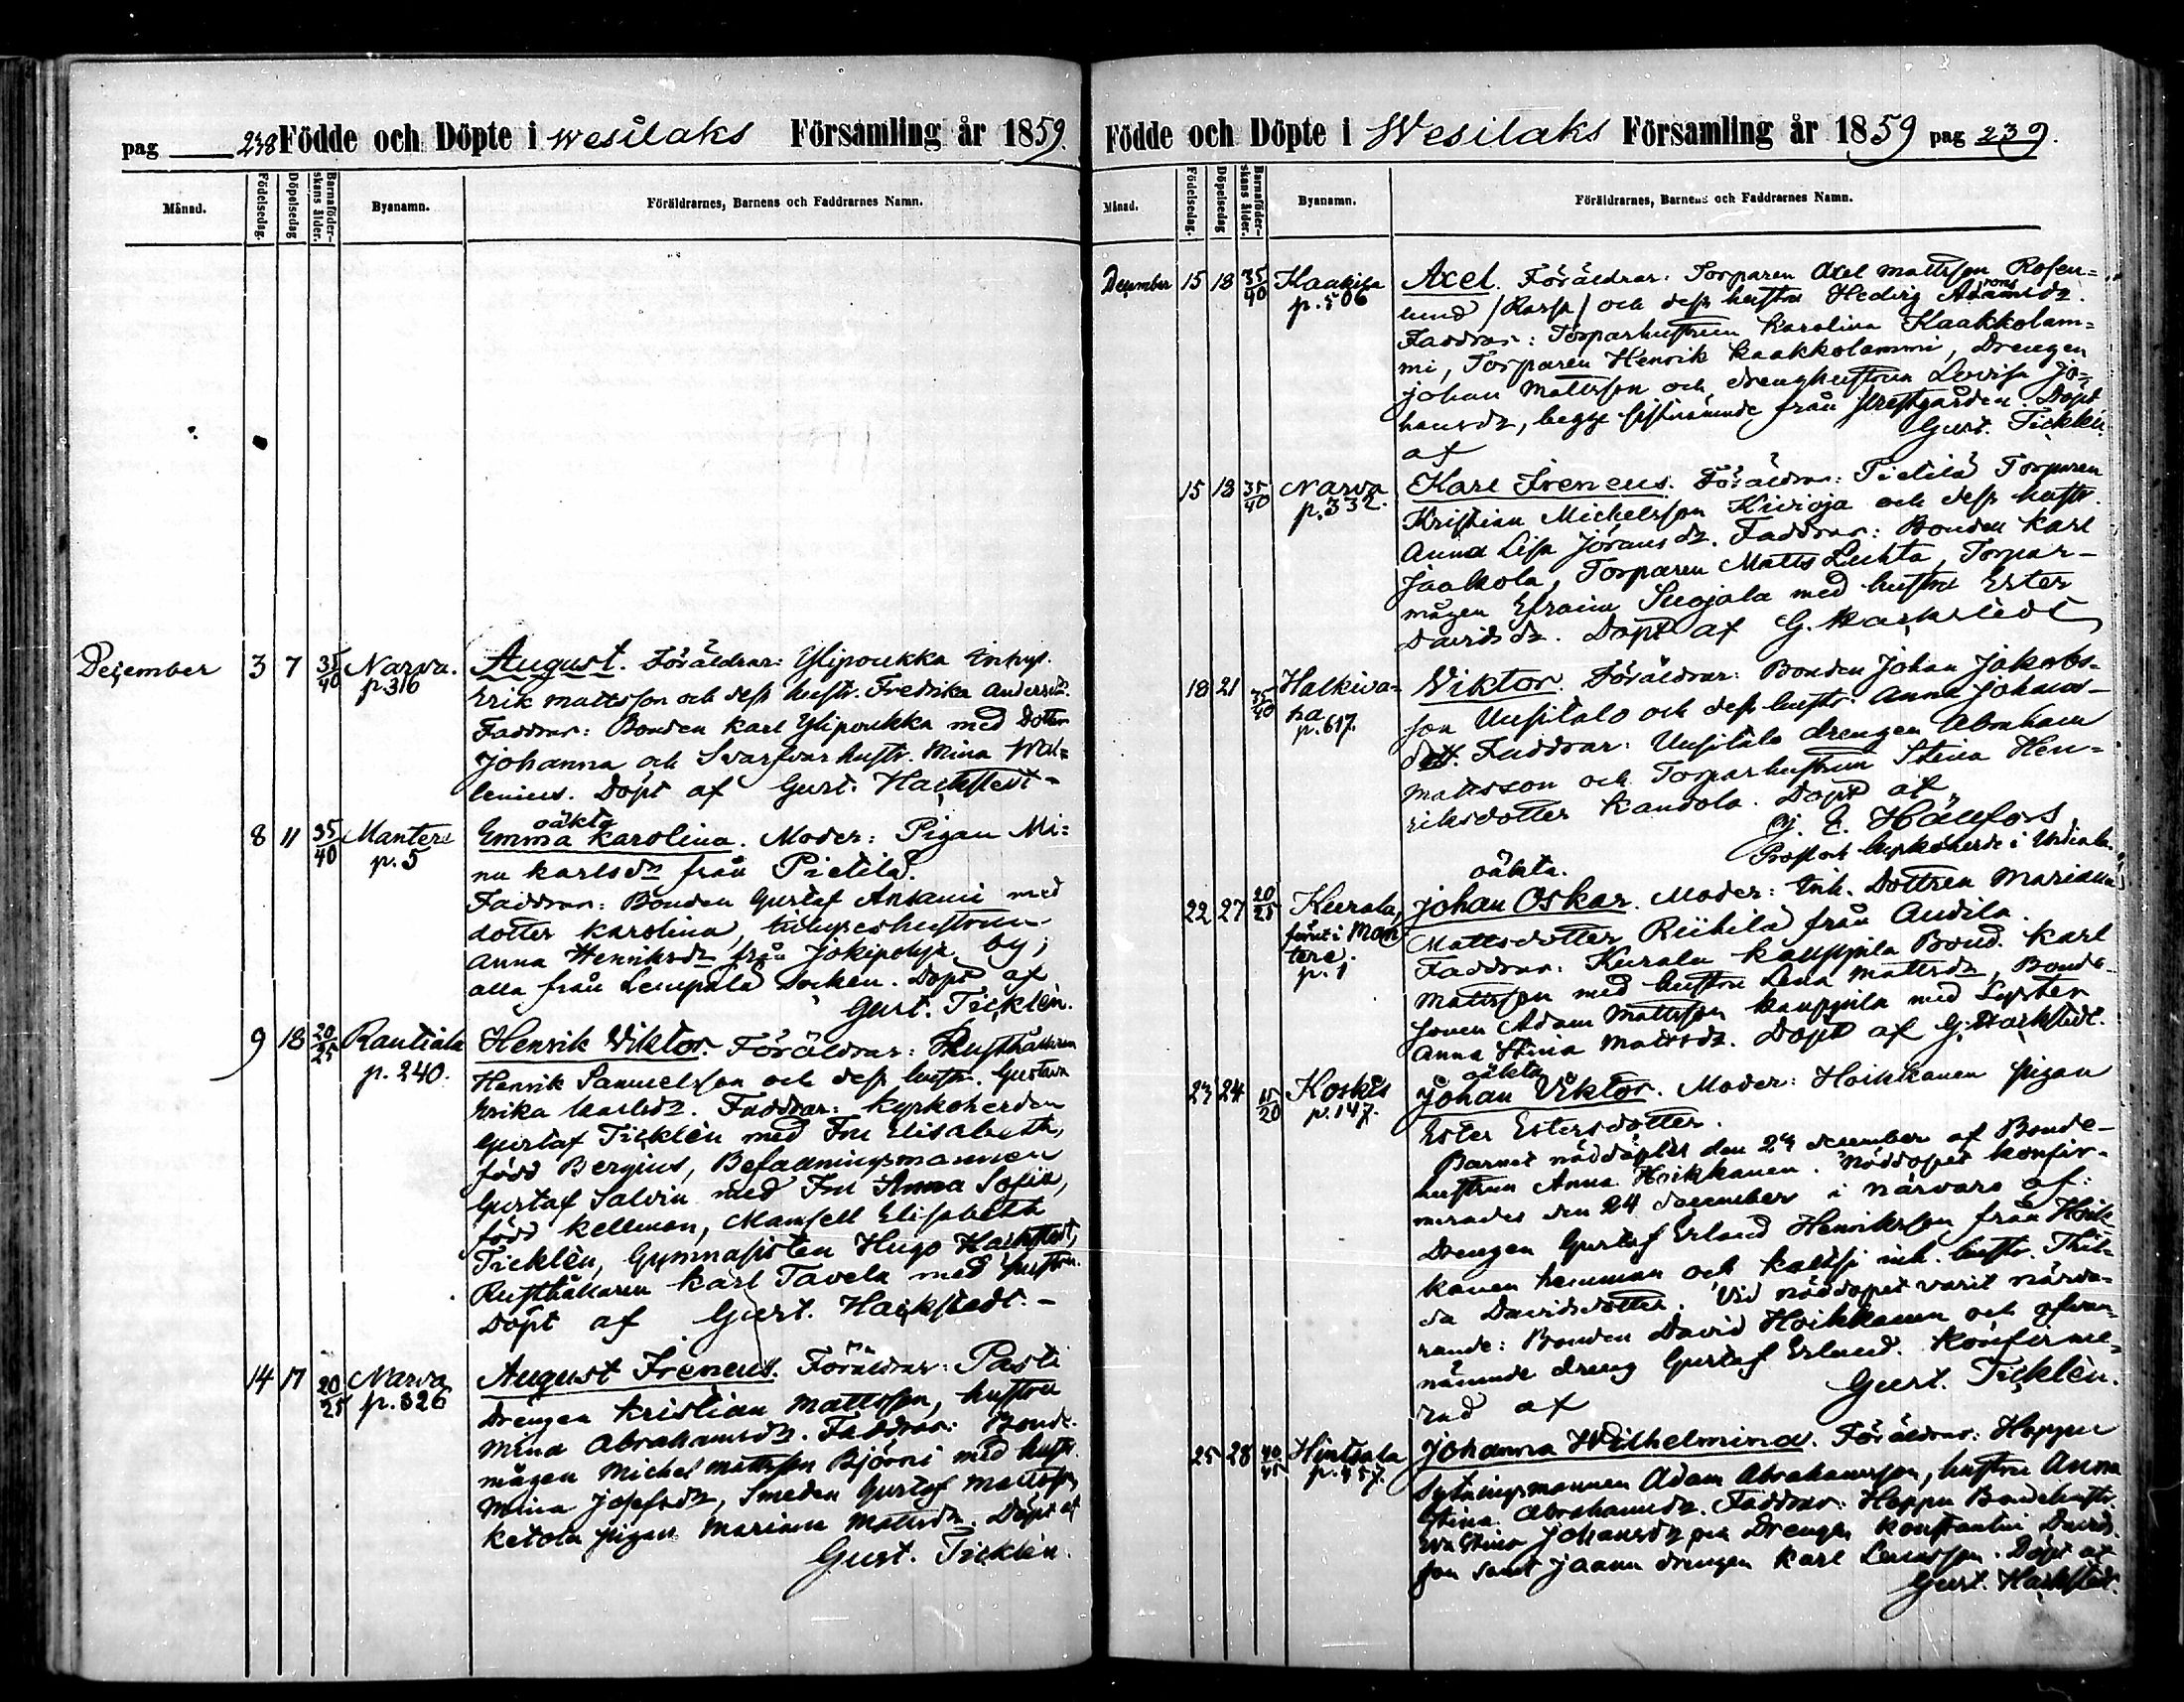 pag 238 Födde och Döpte i Wesilaks Församling år 1859.
Månad. Födelsedag. Döpelsedag Barnaföderskans ålder. Byanamn. Föräldrarnes, Barnens och Faddrarnes Namn.
December 3 7 35/40 Narva. p. 316 August. Föräldrar: Ylipoukka inhys.
Erik Mattsson och dess hustr. Fredrika Andersdr.
Faddrar: Bonden Karl Ylipoukka med dotter
Johanna och Svarfvarhustr. Mina Wal=
lenius. Döpt af Gust. Hackstedt -
oäkta
8 11 35/40 Mantere p. 5 Emma Karolina. Moder: Pigan Mi=
na Karlsdr från Pietilä.
Faddrar: Bonden Gustaf Ankami med
dotter Karolina, inhyseshustrun
Anna Henriksdr från Jokipohja by,
alla från Lempälä socken. Döpt af
Gust. Ticklén.
9 18 20/25 Rautiala p. 240. Henrik Viktor. Föräldrar: Rusthållaren
Henrik Samuelsson och dess hustr. Gustava
Erika Karlsdr. Faddrar: Kyrkoherden
Gustaf Ticklén med Fru Elisabeth,
född Bergius, Befallningsmannen
Gustaf Salvin med Fru Anna Sofia,
född Kellman, Mamsell Elisabeth
Ticklén, Gymnasisten Hugo Hackstedt,
Rusthållaren Karl Tavela med hustru.
Döpt af Gust. Hackstedt. -
14 17 20/25 Narva p. 326 August Ireneus. Föräldrar: Pasti
Drengen Kristian Mattsson, hustru
Mina Abrahamsdr. Faddrar: Bonde-
mågen Michel Mattsson Björni med hustr.
Mina Josefsdr, Smeden Gustaf Mattsson,
Ketola pigan Mariana Mattsdr. Döpt af
Gust. Ticklén.
Födde och Döpte i Wesilaks Församling år 1859 pag 239.
Månad. Födelsedag. Döpelsedag Barnaföderskans ålder. Byanamn. Föräldrarnes, Barnens och Faddrarnes Namn.
December 15 18 35/40 Kaakila p. 506 Axel. Föräldrar: Torparen Axel Mattsson Rosen=
lund / Rassa / och dess hustru Hedvig Adamsdr.
Faddrar: Torparhustrun Karolina Kaakkolam=
mi, Torparen Henrik Kaakkolammi, Drengen
Johan Mattsson och drenghustrun Lovisa Jo=
hansdr, begge sistnämnde från prestgården. Döpt
af Gust. Ticklén.
15 18 35/40 Narva p. 332. Karl Ireneus. Föräldrar: Pietilä Torparen
Kristian Michelsson Kivioja och dess hustr.
Anna Lisa Jöransdr. Faddrar: Bonden Karl
Jaakola, Torparen Matts Luhta, Torpar-
mågen Efraim Suojala med hustru Ester
Davidsdr. Döpt af G. Hackstedt
18 21 35/40 Halkiva= ha p. 617. Viktor. Föräldrar: Bonden Johan Jakobs-
son Uusitalo och dess hustr. Anna Johans-
dott. Faddrar: Uusitalo drengen Abraham
Mattsson och Torparhustrun Stina Hen=
riksdotter Kandola. Döpt af
Prost och kyrkoherde i Urdiala.
oäkta.
22 27 20/25 Kurala, förut i Man tere. p. 1 Johan Oskar. Moder: Inh. Dottren Mariana
Mattsdotter Riihilä från Audila.
Faddrar: Kurala Kauppila Bond. Karl
Mattsson med hustru Lena Mattsdr, Bonde-
sonen Adam Mattsson Kauppila med Syster
Anna Stina Mattsdr. Döpt af G. Hackstedt.
oäkta
23 24 15/20 Koskis p. 147. Johan Viktor. Moder: Hoikkanen pigan
Ester Estersdotter.
Barnet nöddöptes den 24 december af Bonde-
hustrun Anna Hoikkanen. Nöddopet konfir-
merades den 24 december i närvaro af:
Drengen Gustaf Erland Henriksson från Hoik-
kanen hemman och Kaltsi inh. hustr. Thil=
da Davidsdotter. Vid nöddopet varit närva=
rande: Bonden David Hoikkanen och ofvan=
nämnde dreng Gustaf Erland. Konfirme=
rad af Gust. Ticklén.
25 28 40/45 Hintsala p. 457. Johanna Wilhelmina. Föräldrar: Hoppu
Sytningsmannen Adam Abrahamsson, hustru Anna
Stina Abrahamsdr. Faddrar: Hoppu Bondehustr.
Eva Stina Johansdr och Drengen Konstantin Davids-
son samt Jaanu drengen Karl Lenasson. Döpt af
Gust. Hackstedt.